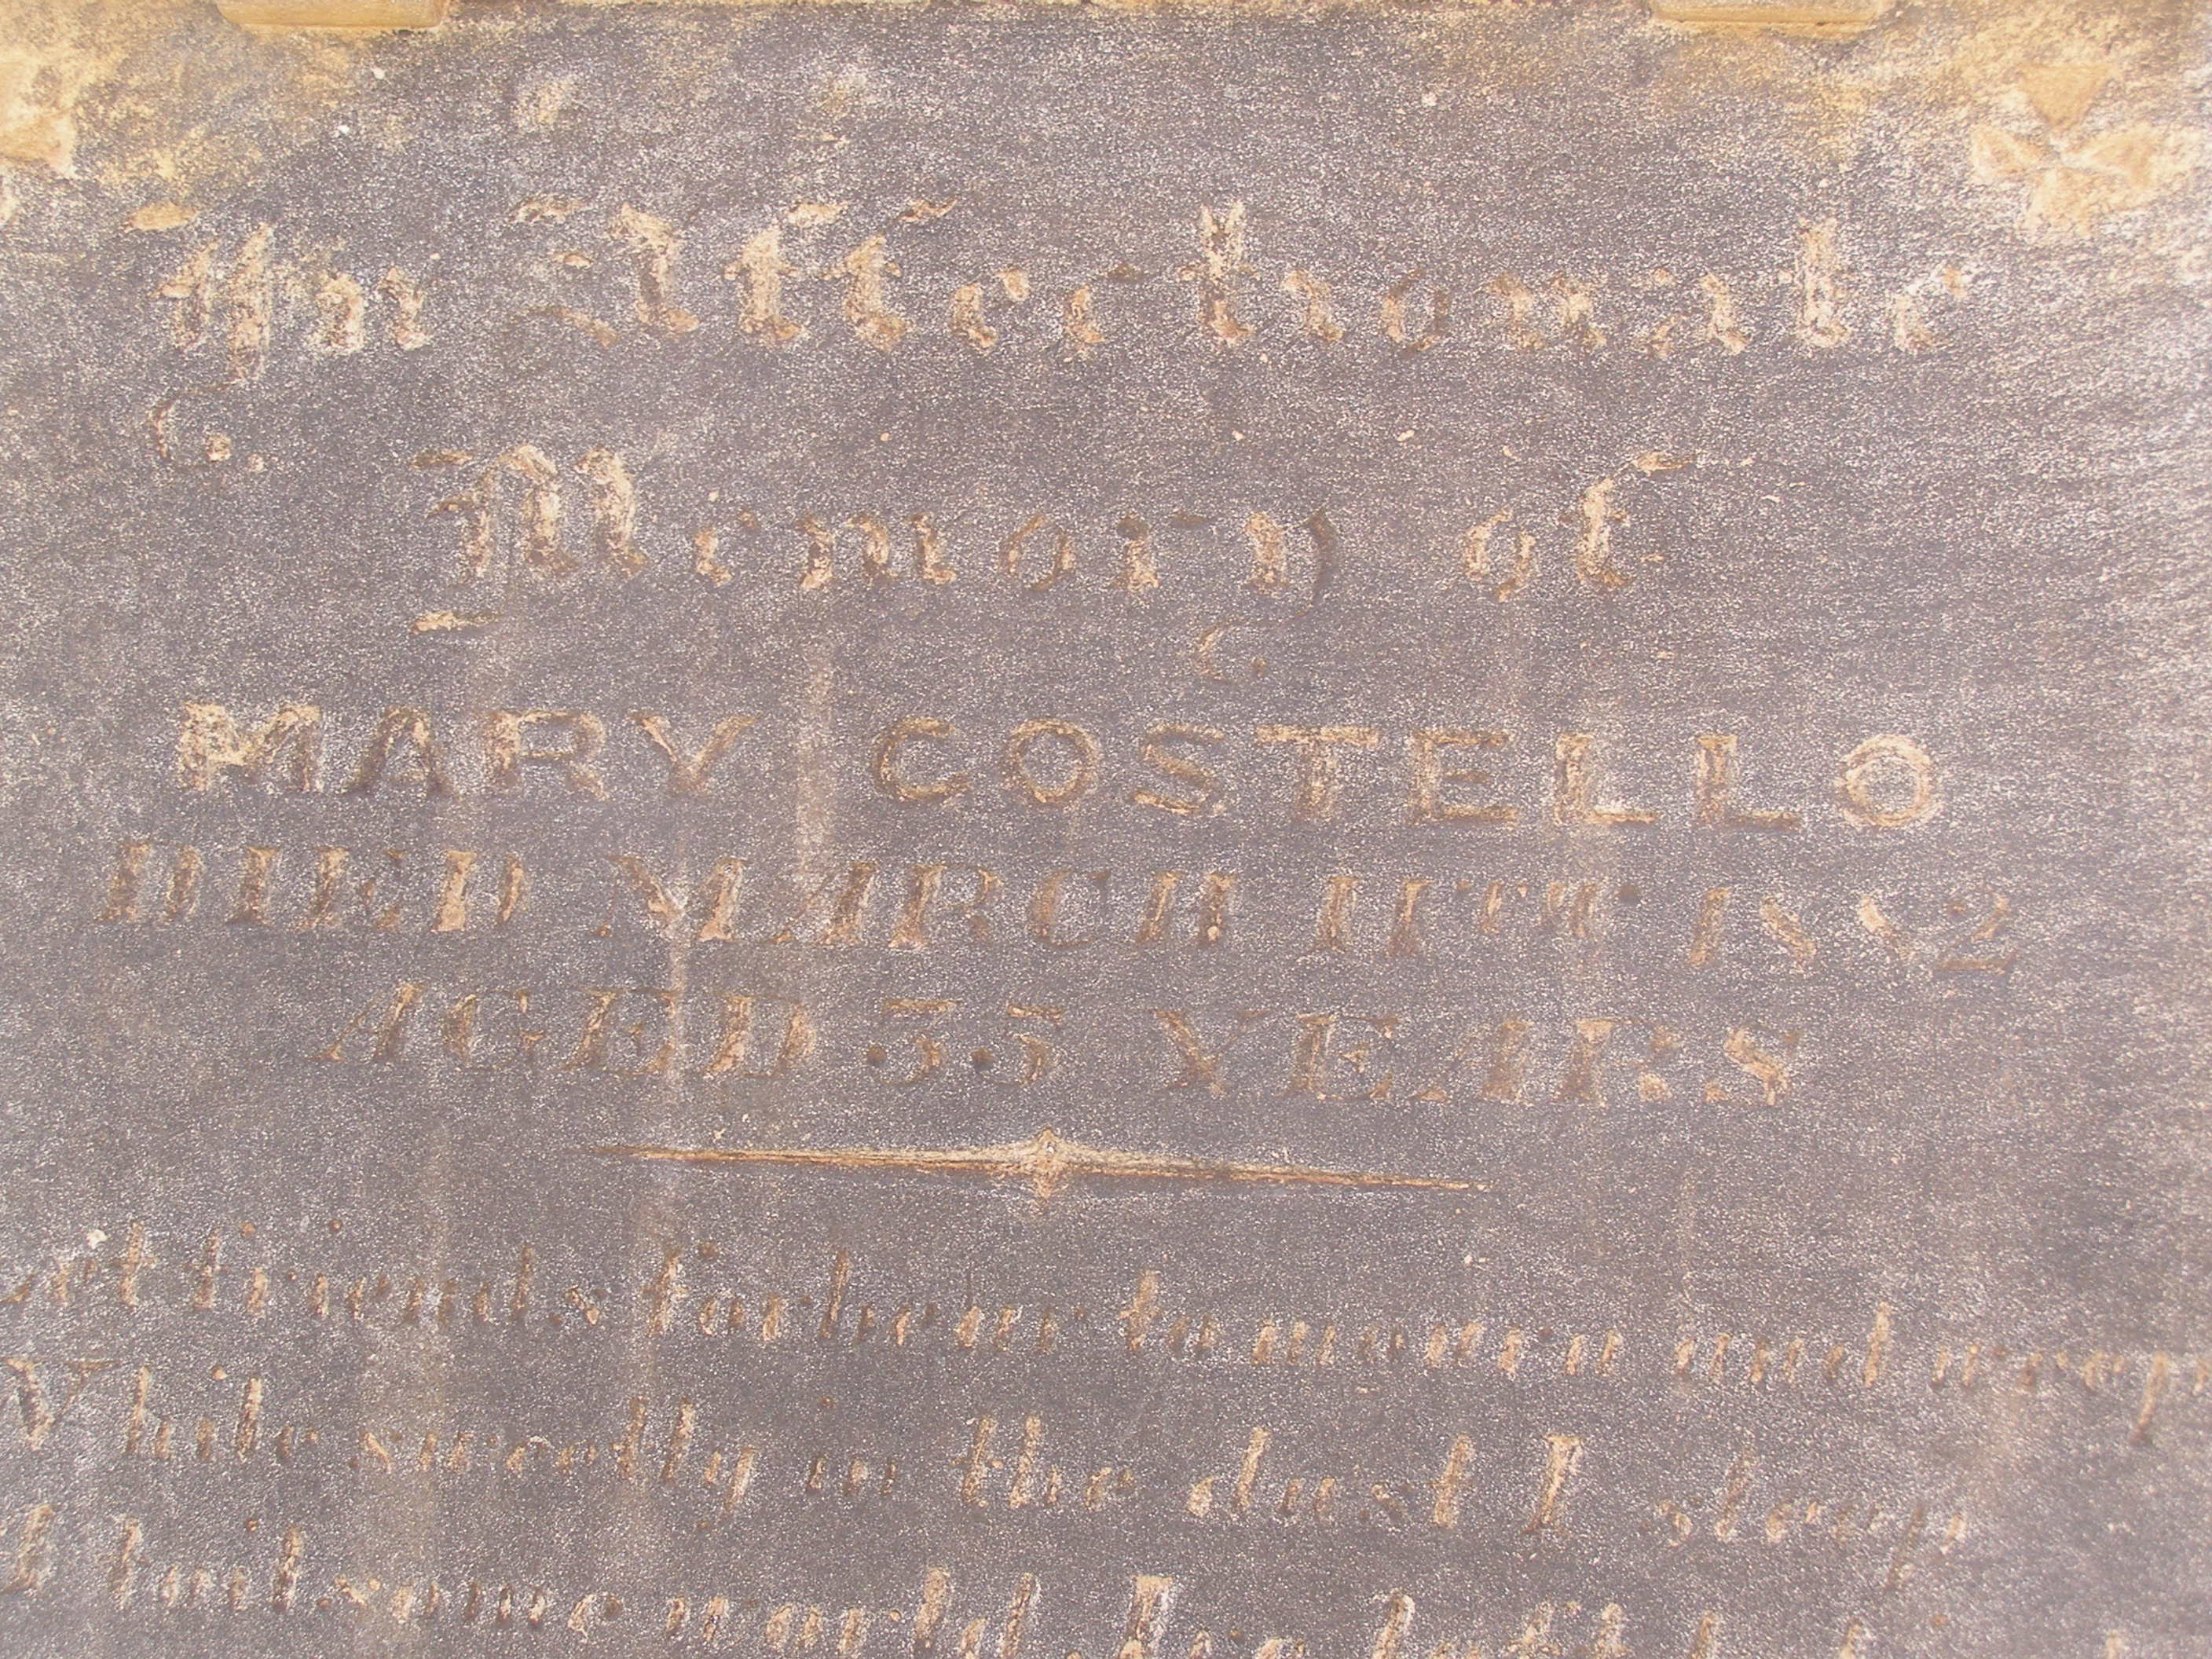 In Affectionate
Memory of
MARY COSTELLO
DIED MARCH 11TH 1882
AGED 35 YEARS
friends forbear to mourn and weep
While sweetly in the dust I sleep